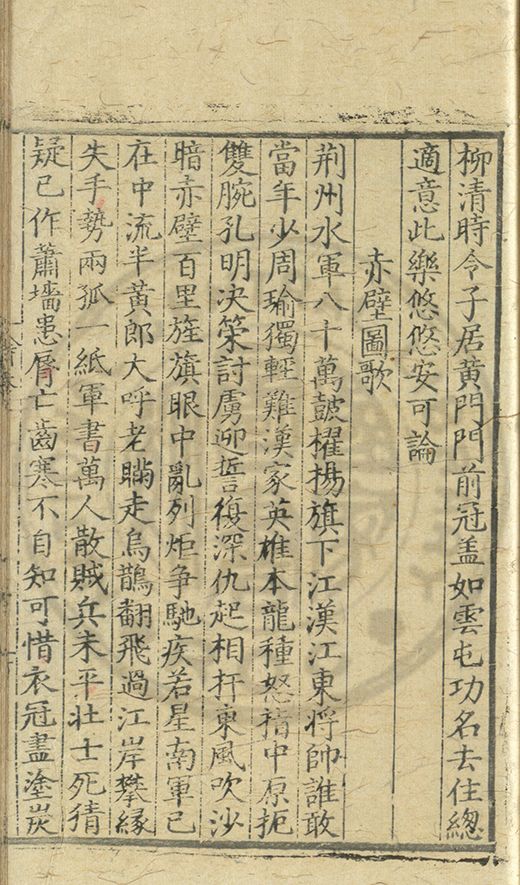 柳清時令子居黄門門前冠盖如雲屯功名去住總
適意此樂悠悠安可論
赤壁圖歌
荆州水軍八十萬皷櫂揚旗下江漢江東將帥誰敢
當年少周瑜獨輕難漢家英雄本龍種怒指中原扼
雙腕孔明决策討虜迎誓復深仇起相扞東風吹沙
暗赤壁百里旌旗眼中亂列炬争馳疾若星南軍已
在中流半黄郎大呼老瞞走烏鵲翻飛過江岸攀緣
失手勢兩孤一紙軍書萬人散賊兵未平壮士死猜
疑已作蕭墻患脣亡齒寒不自知可惜衣冠盡塗炭